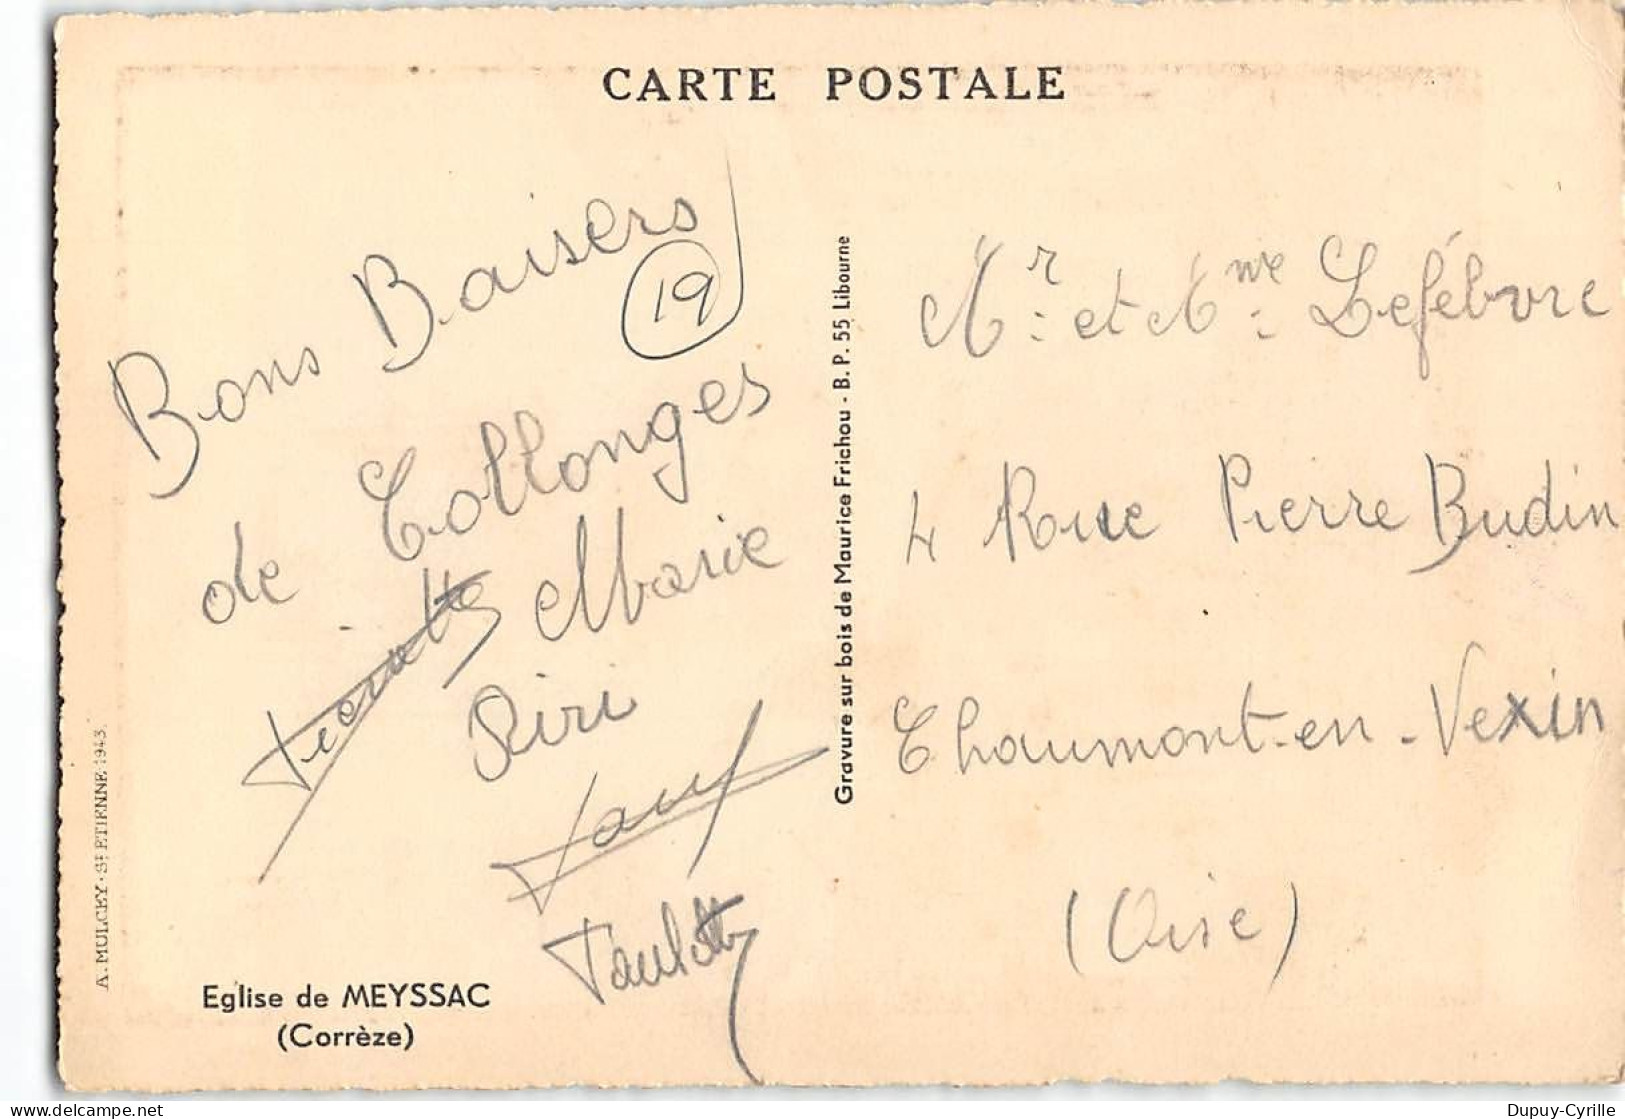 CARTE POSTALE
Bons Baisers
19
de Collonges
Pierrette Marie
Riri
Paulette
Eglise de MEYSSAC
(Corrèze)
A. MULCEY - St ETIENNE 1943.
Gravure sur bois de Maurice Frichou - B. P. 55 Libourne
Mr. et Mme. Lefébvre
4 Rue Pierre Budin
Chaumont-en-Vexin
(Oise)
delcampe.net
Dupuy-Cyrille